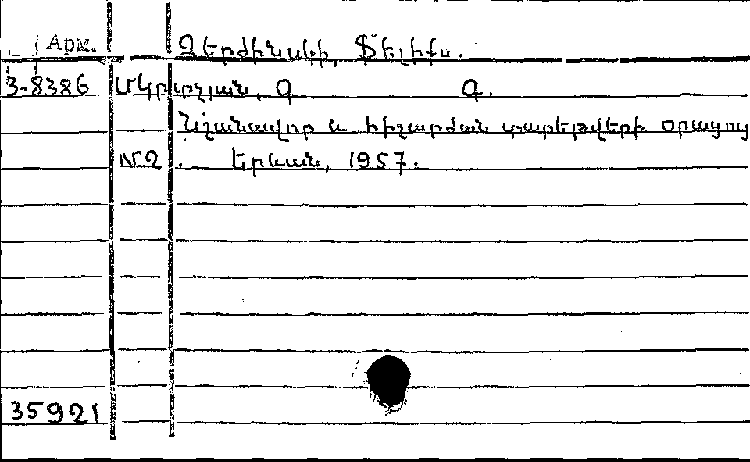 Арм. Ձերժինսկի, Ֆելիքս.
3-8386 Մկրտչյան, Գ Գ.
Նշանավոր և հիշարժան տարեթվերի օրացույ
№2. Երևան, 1957.
35921